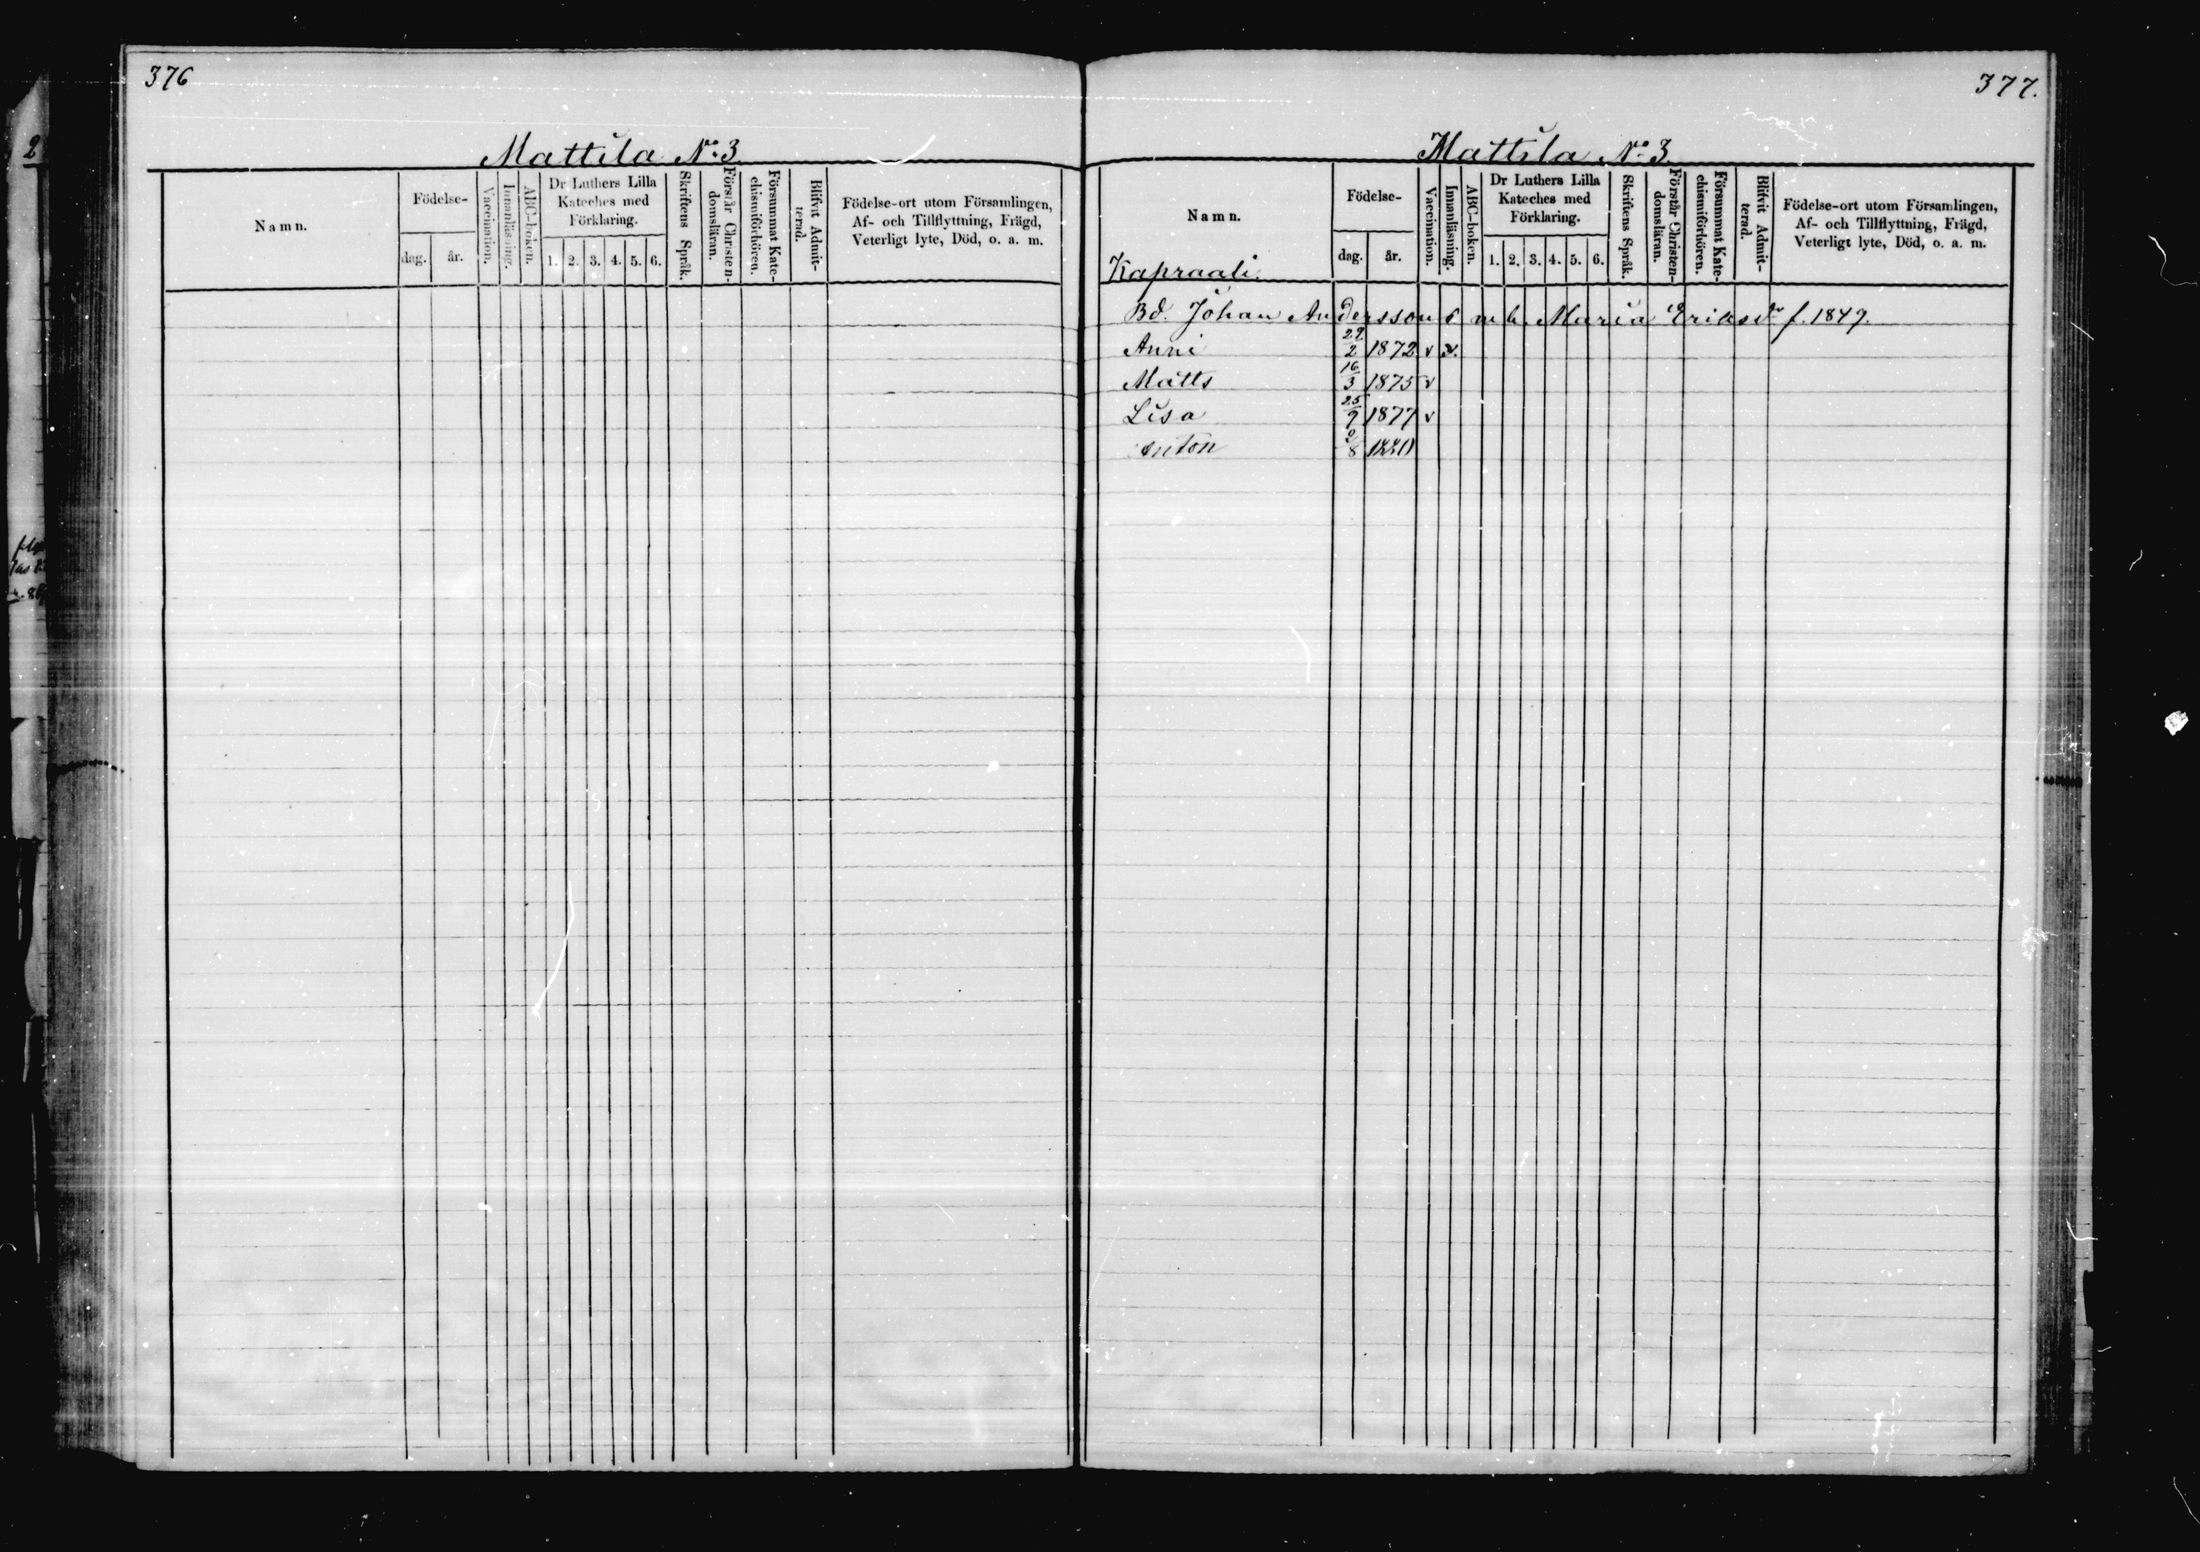 376
Mattila No. 3.
Namn.
Födelse-
dag.
år.
Vaccination.
Innanläsning.
ABC-boken.
Dr Luthers Lilla
Kateches med
Förklaring.
1. 2. 3. 4. 5. 6.
Skriftens Språk.
Förstår Christen-
domsläran.
Försummat Kate-
chismiförhören.
Blifvit Admit-
terad.
Födelse-ort utom Församlingen,
Af- och Tillflyttning, Frägd,
Veterligt lyte, Död, o. a. m.
377.
Mattila No. 3.
Namn.
Födelse-
dag.
år.
Vaccination.
Innanläsning.
ABC-boken.
Dr Luthers Lilla
Kateches med
Förklaring.
1. 2. 3. 4. 5. 6.
Skriftens Språk.
Förstår Christen-
domsläran.
Försummat Kate-
chismiförhören.
Blifvit Admit-
terad.
Födelse-ort utom Församlingen,
Af- och Tillflyttning, Frägd,
Veterligt lyte, Död, o. a. m.
Kapraali.
Bd. Johan Andersson o m h. Maria Eriksdr f. 1849.
Anni 29/2 1872 v v.
Matts 16/3 1875 v
Lisa 25/9 1877 v
Anton 1880